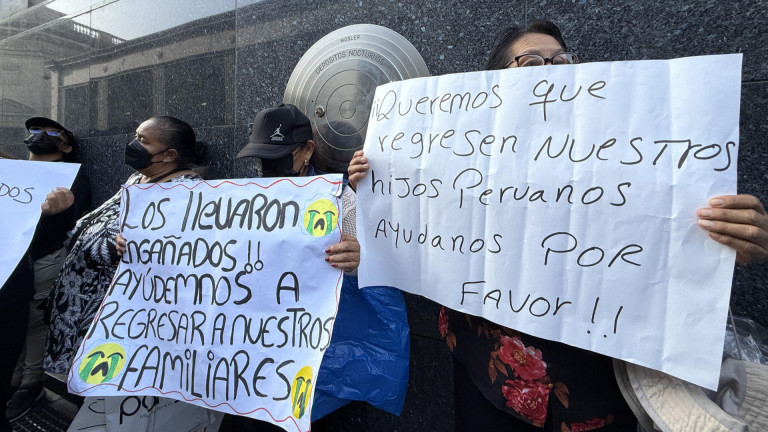 MOSLER
DEPOSITOS NOCTURNOS
DOS
LOS llevARON
ENGAÑADOS!!
AYÚDEMNOS A
REGRESAR A NUESTROS
FAMILIARES
¡¡Queremos que
regresen NUESTROS
hijos Peruanos
Ayudanos POR
FAVOR!!